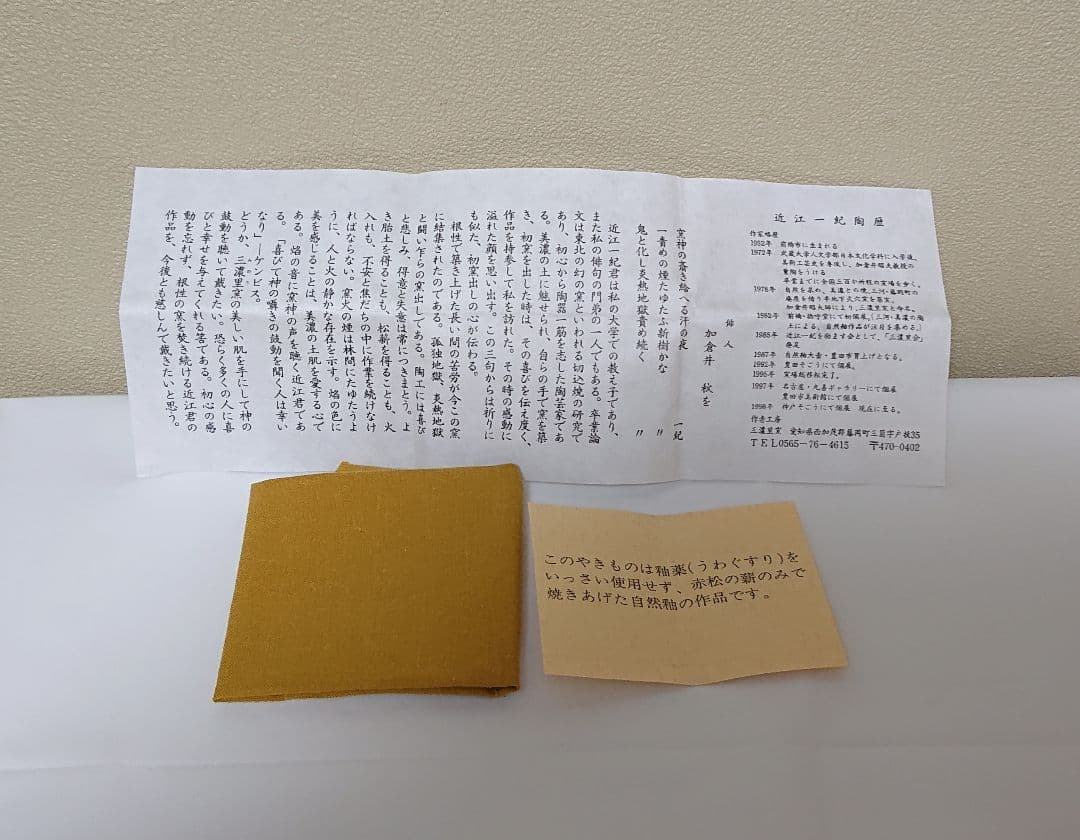 近江一紀陶歴
作家略歴
1952年 前橋市に生まれる
1972年 武蔵大学人文学部日本文化学科に入学後、
美術工芸史を専攻し、加倉井昭夫教授の
薫陶をうける
卒業までに全国三百か所程の窯場を歩く。
1978年 自然を求め、美濃との境、三河・藤岡町の
廃屋を借り半地下式穴窯を築窯。
加倉井昭夫師により、三濃里窯と命名。
1982年 前橋・
にて初個展。(三河・美濃の陶
土による、自然釉作品が注目を集める。)
1985年 近江一紀を励ます会として、「三濃里会」
発足
1987年 自然釉大壺・豊田市買上げとなる。
1992年 豊田そごうにて個展。
1995年 窯場総移転完了。
1997年 名古屋・丸善ギャラリーにて個展
豊田市美術館にて個展
1998年 神戸そごうにて個展 現在に至る。
作者工房
三濃里窯 愛知県西加茂郡藤岡町三箇字戸枝35
TEL0565-76-4615 〒470-0402
俳人
加倉井 秋を
窯神の斎き給へる汗の夜 一紀
一責めの煙たゆたふ新樹かな 〃
鬼と化し炎熱地獄責め続く 〃
近江一紀君は私の大学での教え子であり、
また私の俳句の門弟の一人でもある。卒業論
文は東北の幻の窯といわれる切込焼の研究で
あり、初心から陶器一筋を志した陶芸家であ
る。美濃の土に魅せられ、自らの手で窯を築
き、初窯を出した時は、その喜びを伝え度く、
作品を持参して私を訪れた。その時の感動に
溢れた顔を思い出す。この三句からは祈りに
も似た、初窯出しの心が伝わる。
根性で築き上げた長い間の苦労が今この窯
に結集されたのである。孤独地獄、炎熱地獄
と闘い乍らの窯出してある。陶工には喜び
と悲しみ、得意と失意は常につきまとう。よ
き胎土を得ることも、松薪を得ることも、火
入れも、不安と焦だちの中に作業を続けなけ
ればならない。窯火の煙は林間にたゆたうよ
うに、人と火の静かな存在を示す。焔の色に
美を感じることは、美濃の土肌を愛する心で
ある。焔の音に窯神の声を聴く近江君であ
る。「喜びて神の囁きの鼓動を聞く人は幸い
なり」―ゲンビス。
どうか、三濃里窯の美しい肌を手にして神の
鼓動を聴いて戴きたい。恐らく多くの人に喜
びと幸せを与えてくれる筈である。初心の感
動を忘れず、根性の窯を焚き続ける近江君の
作品を、今後とも慈しんで戴きたいと思う。
このやきものは釉薬(うわぐすり)を
いっさい使用せず、赤松の薪のみで
焼きあげた自然釉の作品です。